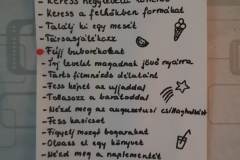 - Keress négylevelű lóherét
- Keress a felhőkben formákat
- Találj ki egy mesét
- Társasjátékozz
Fújj buborékokat
- Írj levelet magadnak jövő nyárra
- Tarts filmnézős délutánt
- Fess képet az ujjaddal
- Tollasozz a barátoddal
- Nézd meg az augusztusi csillaghullást
- Fess kavicsot
- Figyelj mezei bogarakat
- Olvass el egy könyvet
- Nézd meg a naplementét